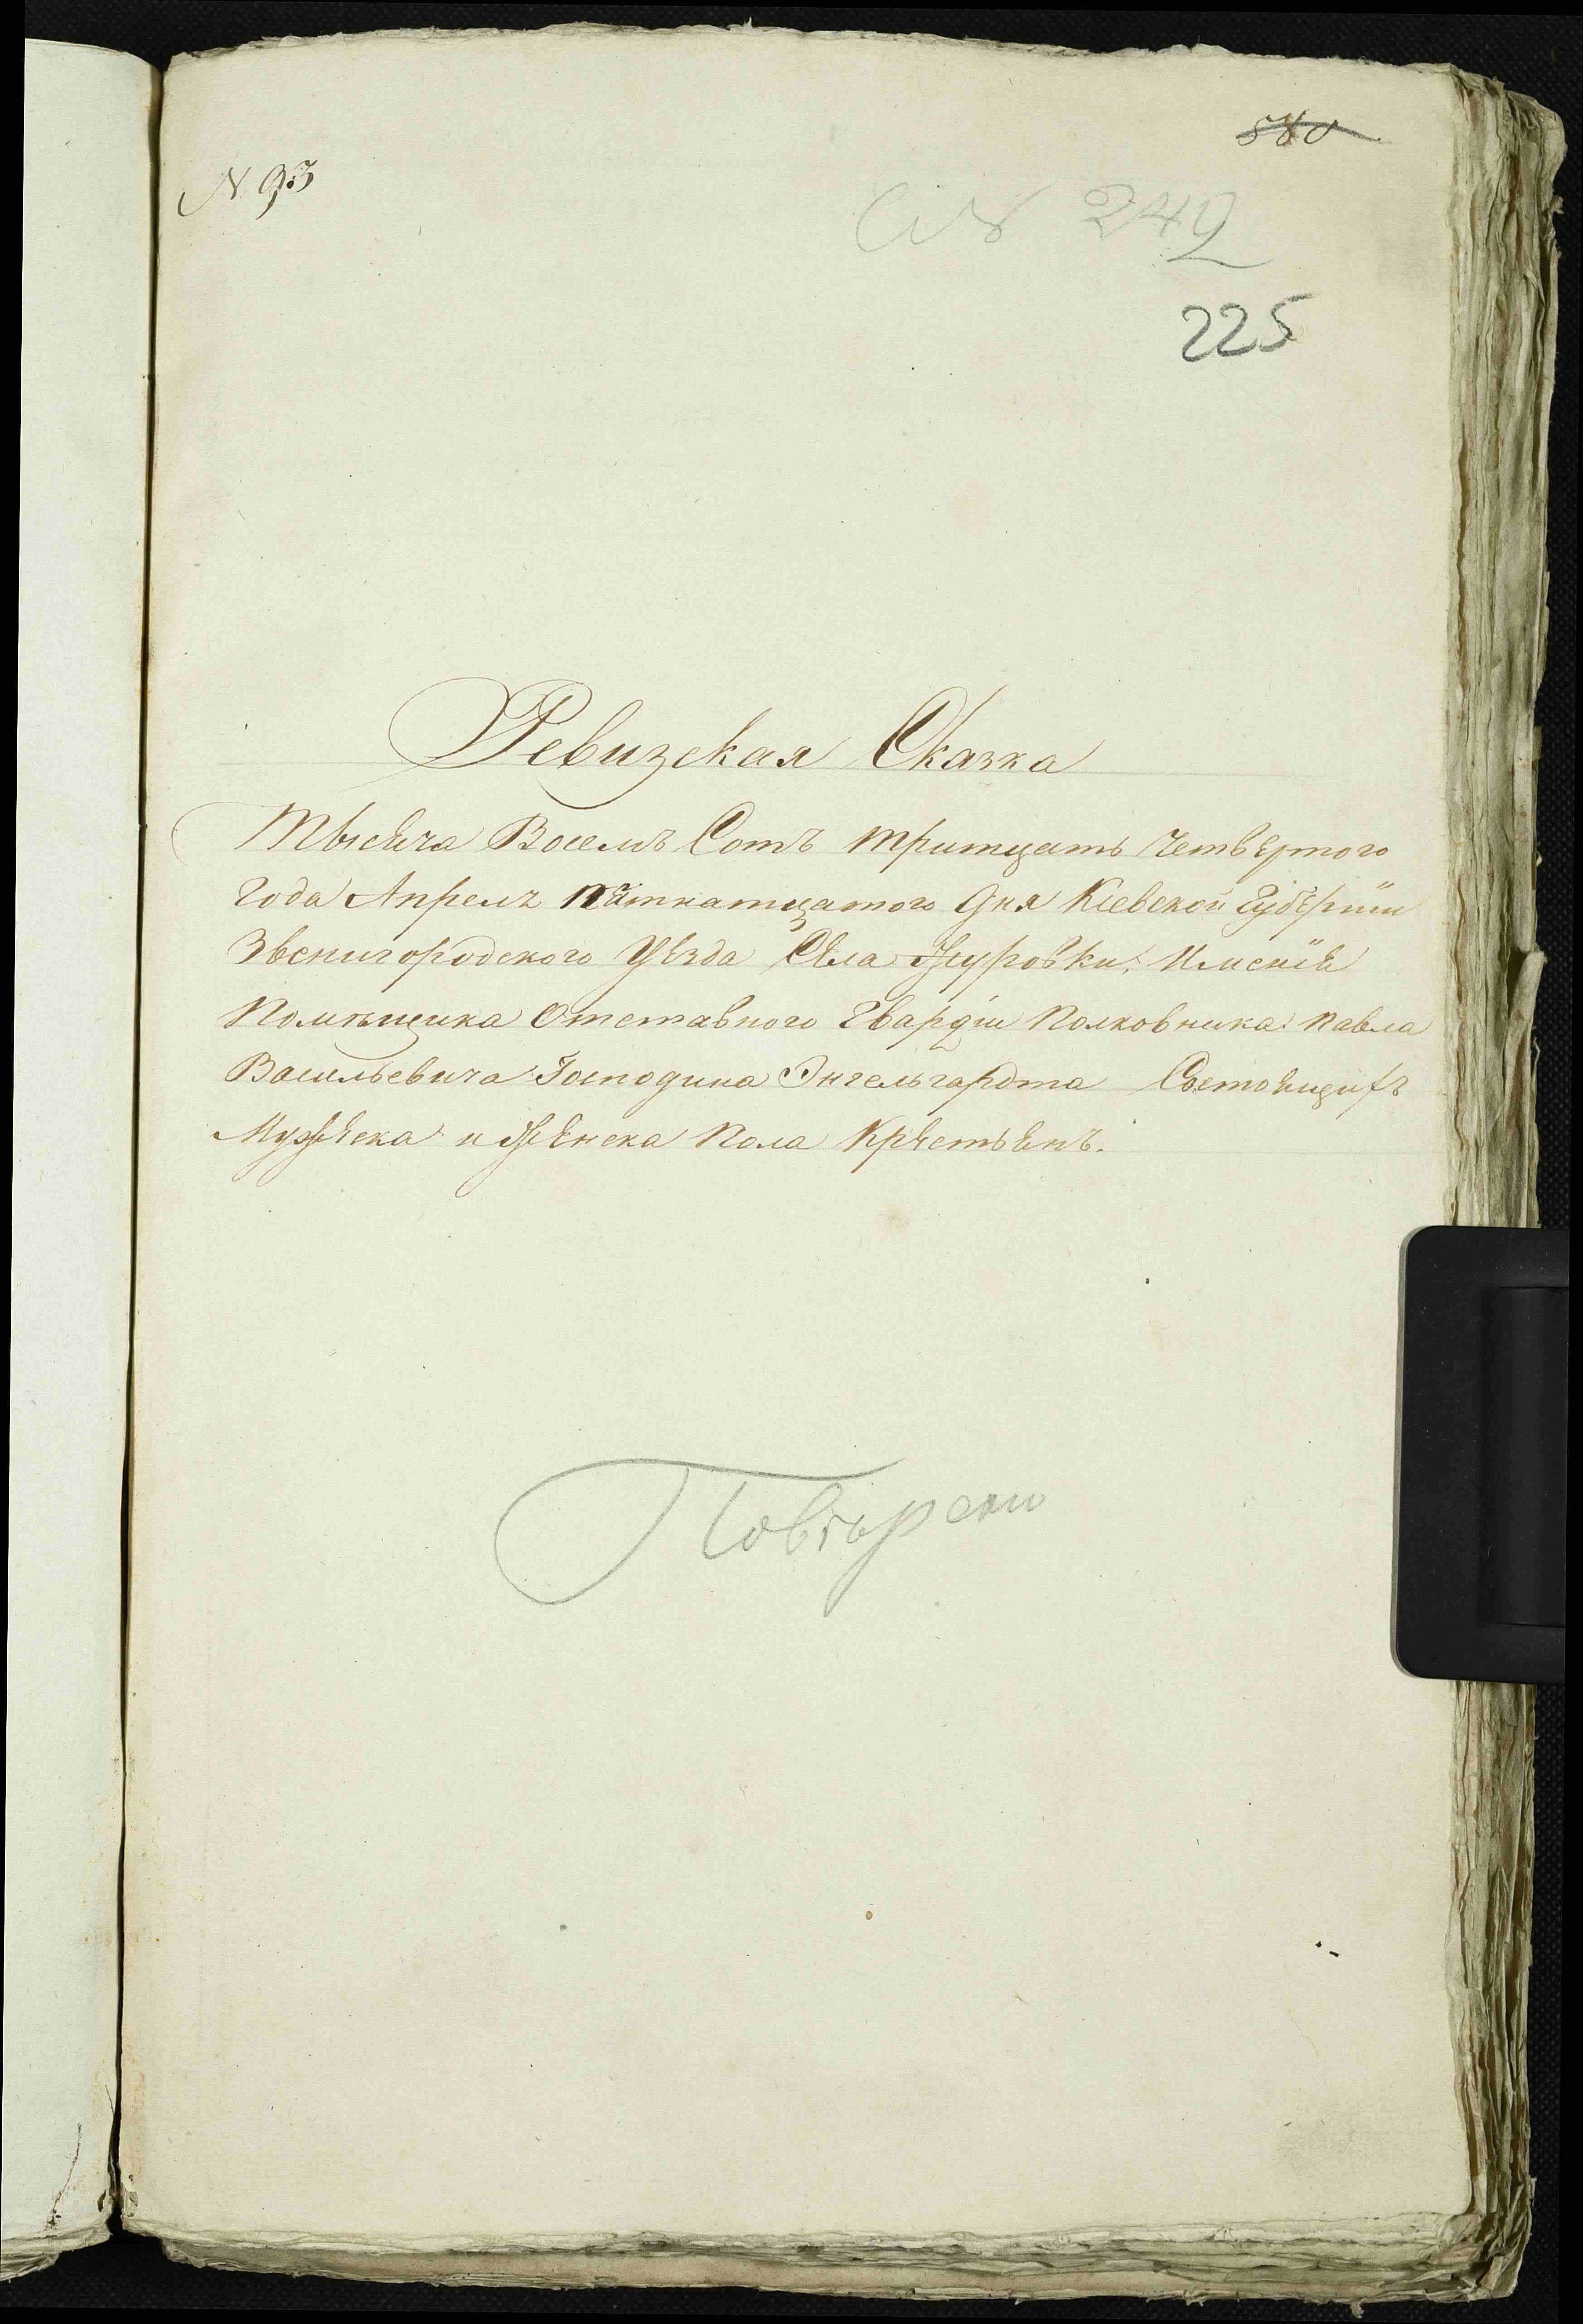 580
N 93
№ 249
225
Ревизская Сказка
Тысяча Восемъ Сотъ тритцать четвертого
Года Апреля пятнатцатого дня Кіевской Губерніи
Звенигородского Уѣзда Села Журовки, Имения
Помѣщика Отставного Гвардіи Полковника Павла
Васильевича Господина Энгельгардта Состоящихъ
Мужеска и Женска Пола Крестьянъ.